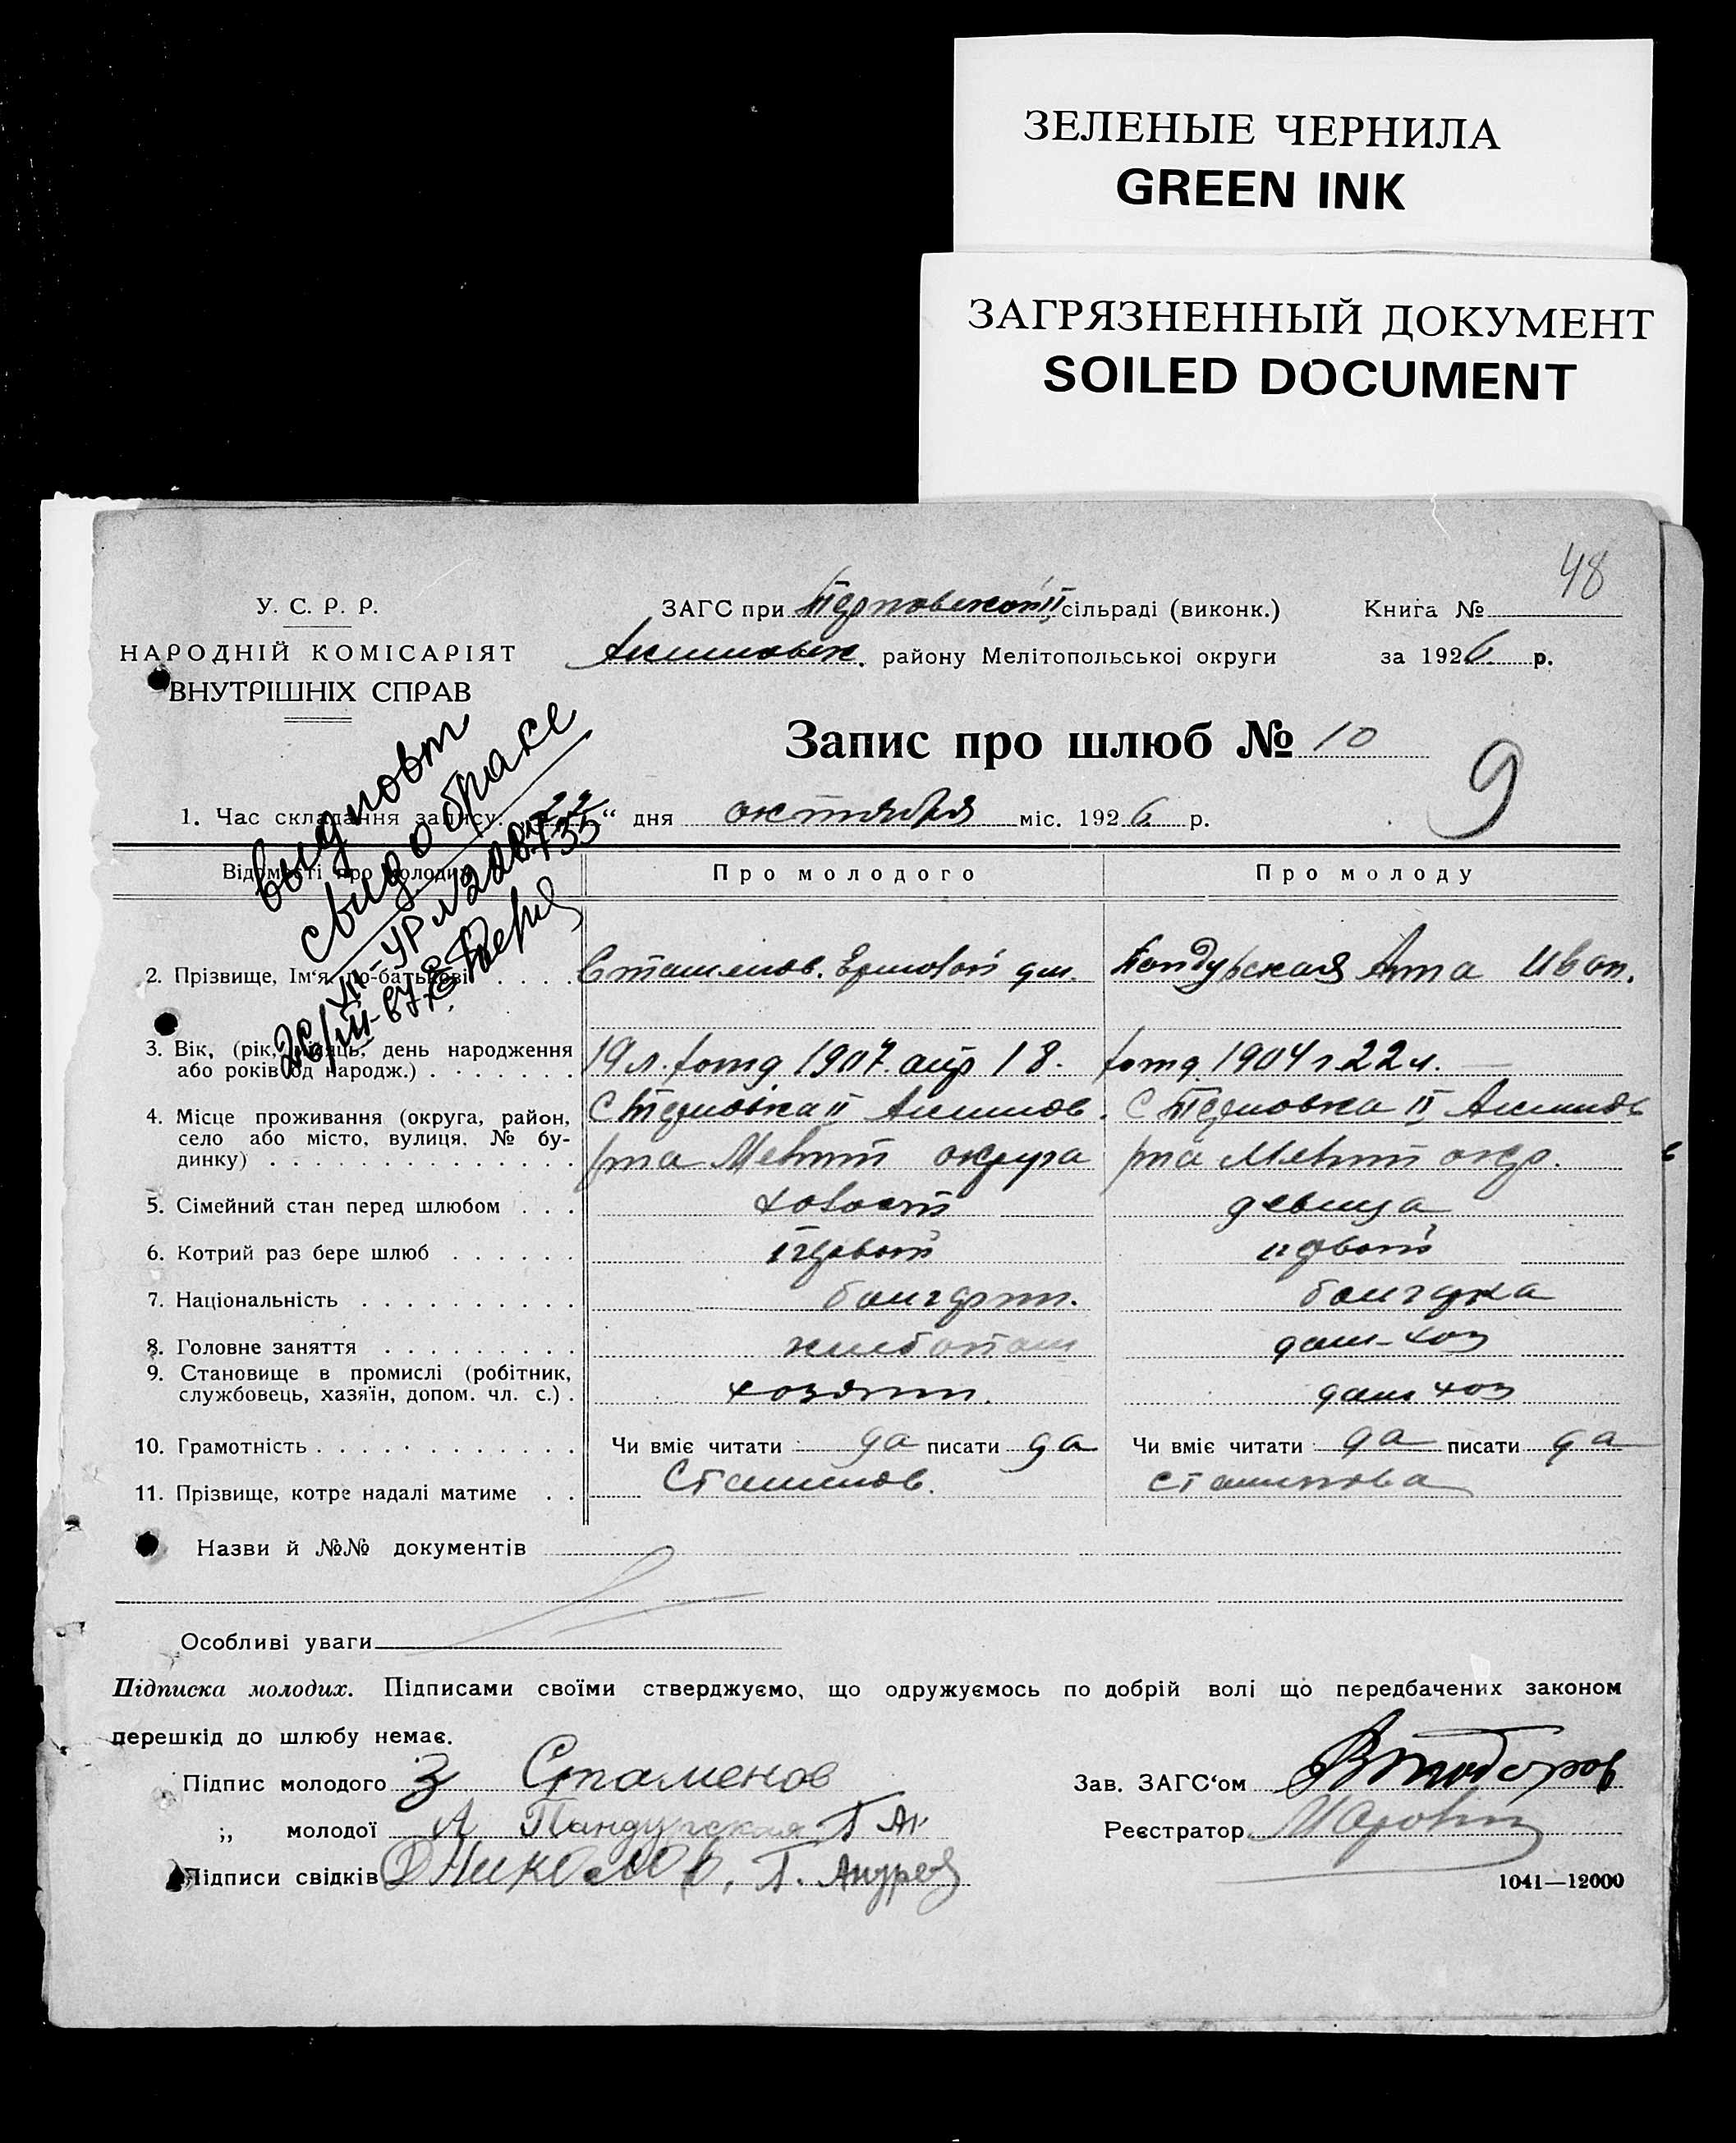 ЗЕЛЕНЫЕ ЧЕРНИЛА
GREEN INK
ЗАГРЯЗНЕННЫЙ ДОКУМЕНТ
SOILED DOCUMENT
48
У. С. Р. Р.
НАРОДНІЙ КОМІСАРІЯТ
ВНУТРІШНІХ СПРАВ
ЗАГС при II сільраді (виконк.)
Книга №
Акимовск. району Мелітопольської округи
за 1926 р.
Запис про шлюб № 10
9
выд повт
свид о браке
1. Час складання запису: „22“ дня октября міс. 1926 р.
Відомості про молодих
Про молодого
Про молоду
2. Прізвище, Ім‘я, по-батькові
Стаменов.
Пандурская Анна Иван.
3. Вік, (рік, місяць, день народження
або років од народж.)
19 л. 1907 апр 18.
1904 г 22 л.
4. Місце проживання (округа, район,
село або місто, вулиця, № бу-
динку)
с II Акимов.
с II Акимов
р-на Мелит округа
р-на Мелит окр.
5. Сімейний стан перед шлюбом
холост
девица
6. Котрий раз бере шлюб
первый
первый
7. Національність
болгарин.
болгарка
8. Головне заняття
хлебопаш
дом-хоз
9. Становище в промислі (робітник,
службовець, хазяїн, допом. чл. с.)
хозяин.
дом хоз
10. Грамотність
Чи вміє читати да писати да
Чи вміє читати да писати да
11. Прізвище, котре надалі матиме
Стаменов.
Стаменова
Назви й №№ документів
Особливі уваги
Підписка молодих. Підписами своїми стверджуємо, що одружуємось по добрій волі що передбачених законом
перешкід до шлюбу немає.
Підпис молодого З Стаменов
Зав. ЗАГС‘ом
„ молодої А Пандурская
Реєстратор
Підписи свідків
1041—12000